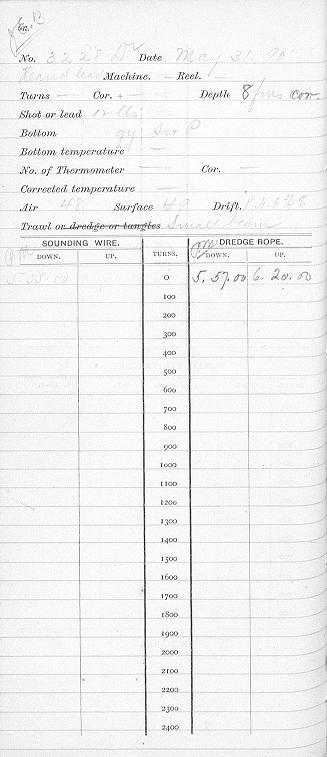 En. B
No. 3228 Dr Date May 31. 90
Hand lead Machine. – Reel. –
Turns – Cor. + – Depth 8 fms Cor.
Shot or lead 12 lbs
Bottom gy S P
Bottom temperature —
No. of Thermometer — Cor. —
Corrected temperature —
Air 48 Surface 49 Drift.
Trawl or dredge or tangles Small beam
SOUNDING WIRE. DREDGE ROPE.
PM DOWN. UP. TURNS. PM DOWN. UP.
5.55.00 0 5.57.00 6.20.00
100
200
300
400
500
600
700
800
900
1000
1100
1200
1300
1400
1500
1600
1700
1800
1900
2000
2100
2200
2300
2400